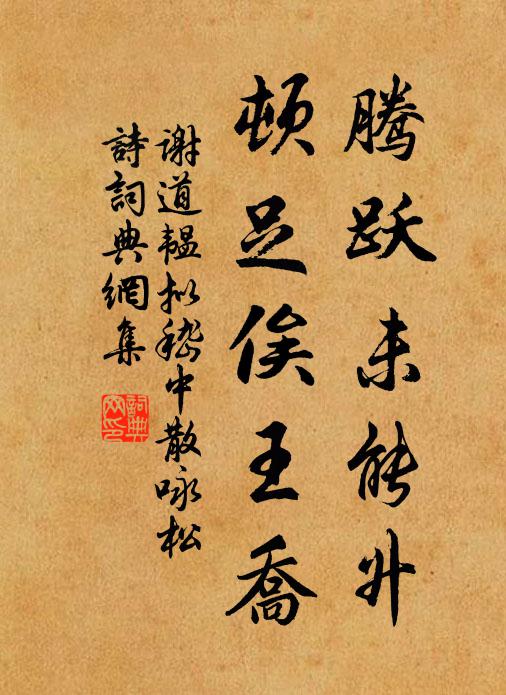 腾跃未能升
顿足俟王乔
谢道韫拟嵇中散咏松
詩詞典網集
詞典
网印